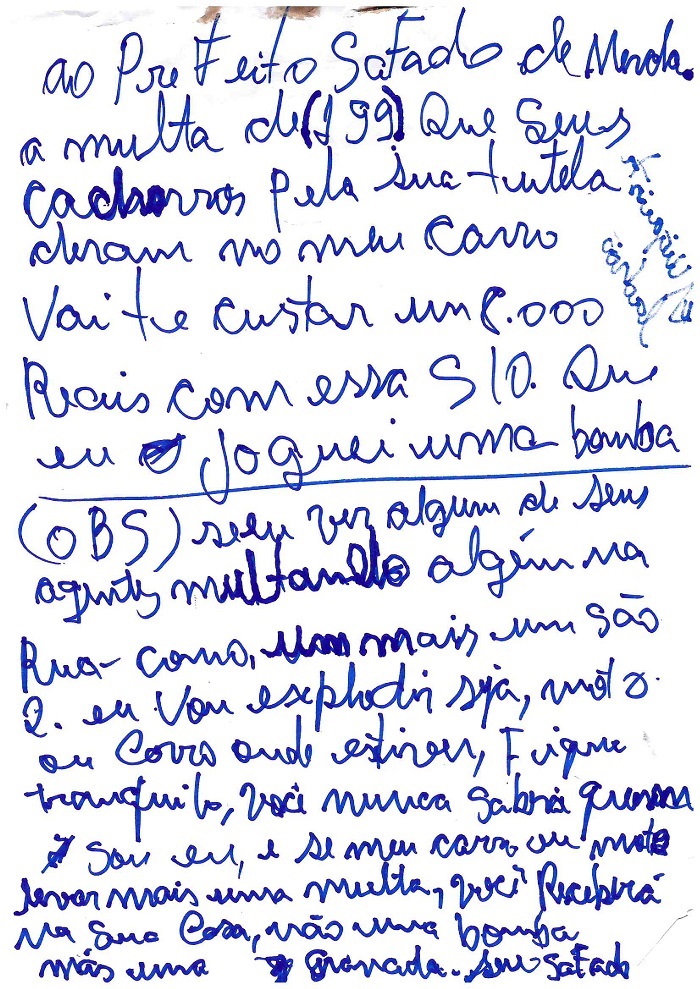 ao PreFeito SaFado de Merda.
a multa de (199) Que Seus
cachorros pela sua tutela
deram no meu Carro
Vai te custar um 8.000
Reais com essa S10. Que
eu joguei uma bomba
(OBS) seeu ver algum de seus
agentes multando algém na
Rua como, um mais um são
2. eu Vou explodir seja, moto
ou Carro onde estiver, Fique
tranquilo, você nunca Saberá quem
Sou eu, e se meu carro ou moto
levar mais uma multa, você Receberá
na Sua Casa, não uma bomba
más uma Granada. Seu Safado